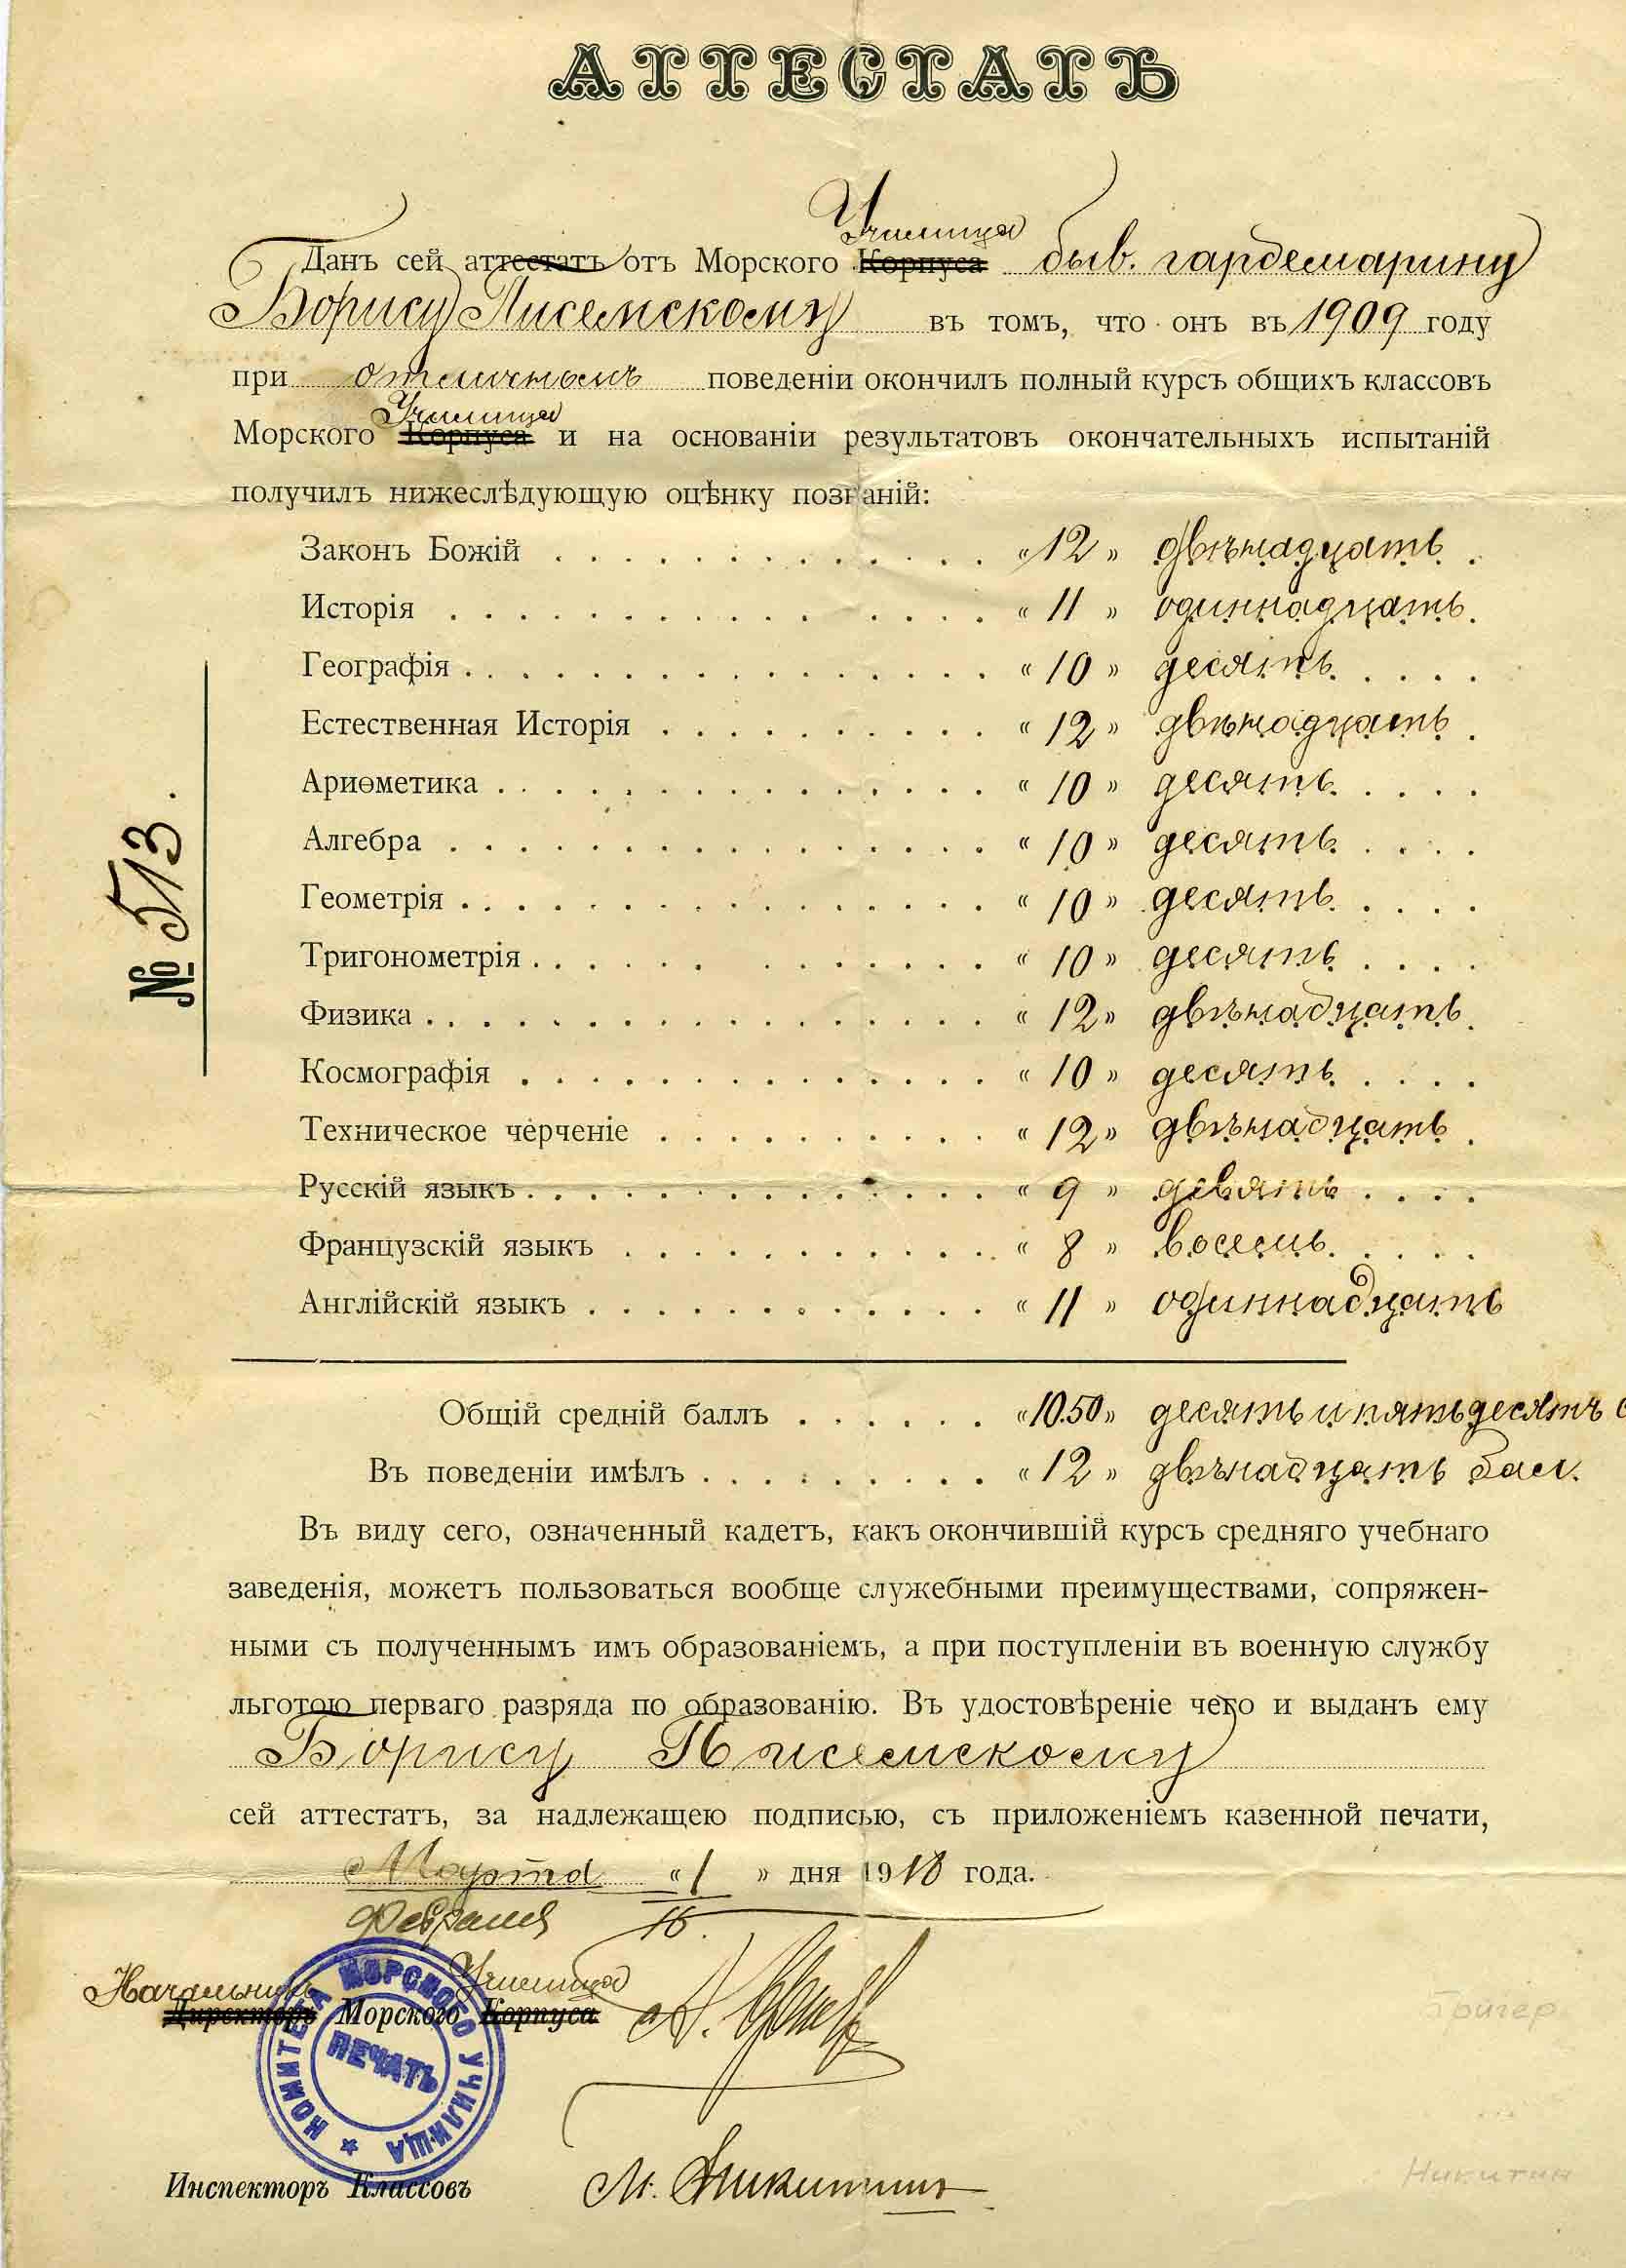 АТТЕСТАТЪ
Училища
Данъ сей аттестатъ отъ Морского Корпуса быв. гардемарину
Борису Писемскому въ томъ, что онъ въ 1909 году
при отличномъ поведеніи окончилъ полный курсъ общихъ классовъ
Училища
Морского Корпуса и на основаніи результатовъ окончательныхъ испытаній
получилъ нижеслѣдующую оцѣнку познаній:
Законъ Божій . . . . . . . . . . . . . . « 12 » двѣнадцать .
Исторія . . . . . . . . . . . . . . « 11 » одиннадцать.
Географія . . . . . . . . . . . . . . « 10 » десять . . . .
Естественная Исторія . . . . . . . . . . « 12 » двѣнадцать .
Ариѳметика . . . . . . . . . . . . . . « 10 » десять . . . .
Алгебра . . . . . . . . . . . . . . « 10 » десять . . . .
Геометрія . . . . . . . . . . . . . . « 10 » десять . . . .
Тригонометрія . . . . . . . . . . . . . « 10 » десять . . . .
Физика . . . . . . . . . . . . . . « 12 » двѣнадцать .
Космографія . . . . . . . . . . . . . « 10 » десять . . . .
Техническое черченіе . . . . . . . . . . « 12 » двѣнадцать .
Русскій языкъ . . . . . . . . . . . . . « 9 » девять . . . .
Французскій языкъ . . . . . . . . . . . « 8 » восемь . . . .
Англійскій языкъ . . . . . . . . . . . . « 11 » одиннадцать
Общій средній баллъ . . . . . . «10.50» десять и пятьдесятъ с
Въ поведеніи имѣлъ . . . . . . . . . « 12 » двѣнадцать бал.
Въ виду сего, означенный кадетъ, какъ окончившій курсъ средняго учебнаго
заведенія, можетъ пользоваться вообще служебными преимуществами, сопряжен-
ными съ полученнымъ имъ образованіемъ, а при поступленіи въ военную службу
льготою перваго разряда по образованію. Въ удостовѣреніе чего и выданъ ему
Борису Писемскому
сей аттестатъ, за надлежащею подписью, съ приложеніемъ казенной печати,
Марта « 1 » дня 1918 года.
Февраля 16.
Начальникъ Училища
Директоръ Морского Корпуса
КОМИТЕТА МОРСКОГО УЧИЛИЩА
ПЕЧАТЬ
Бригер
Инспекторъ Классовъ М. Никитинъ
Никитин
№ 513.